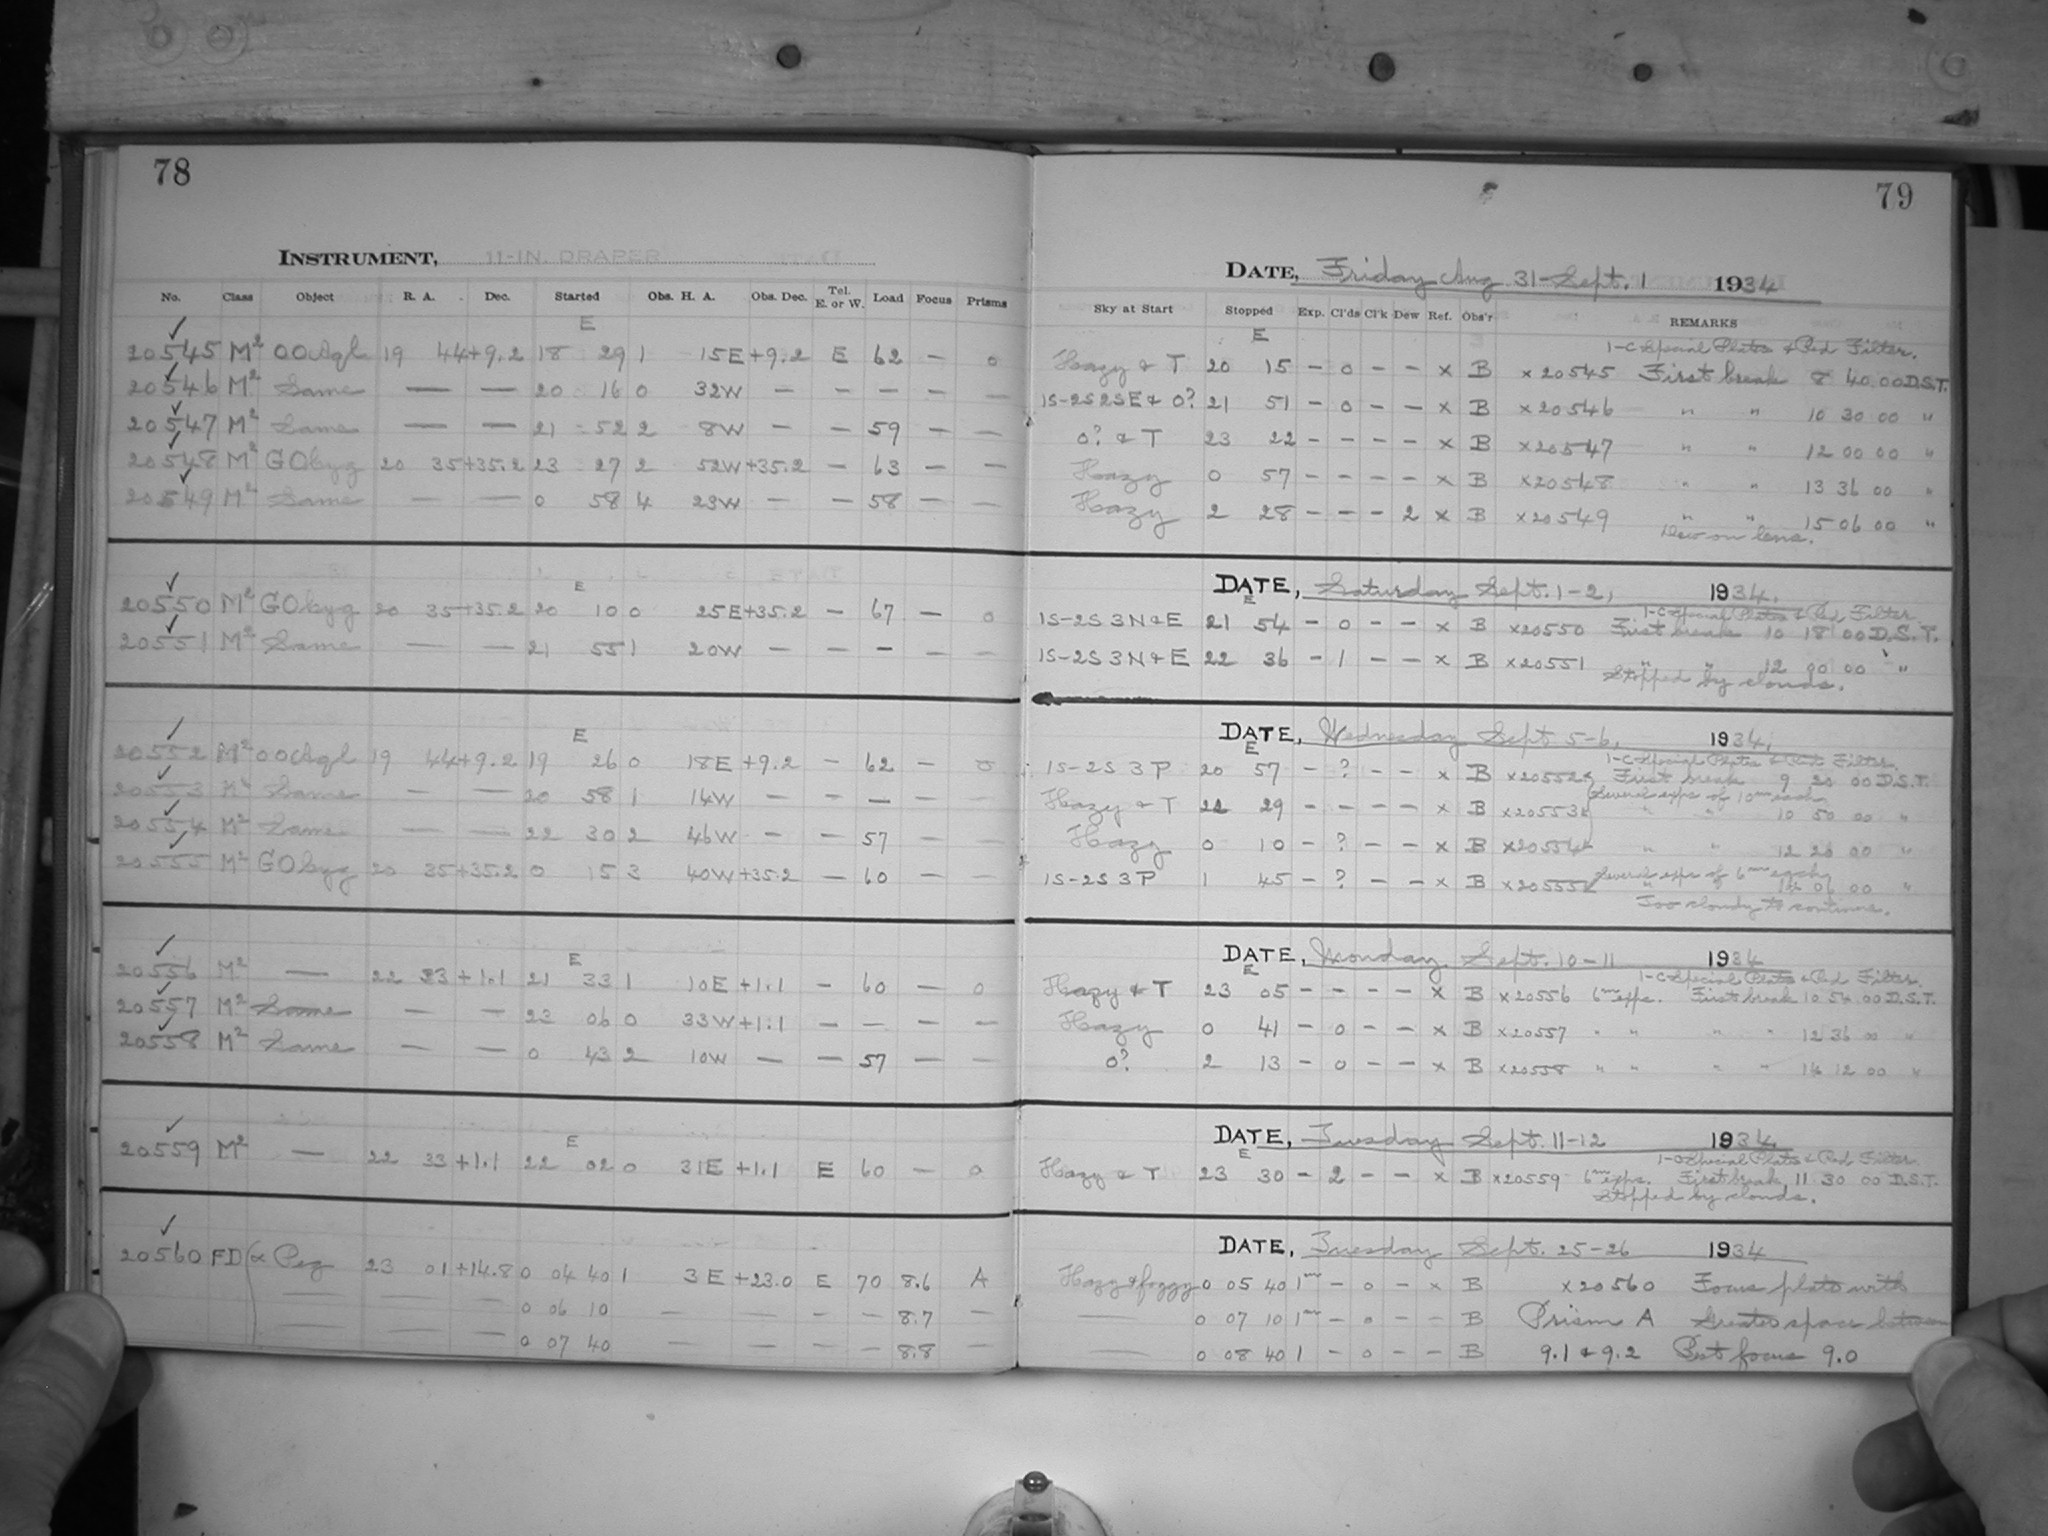 78
INSTRUMENT, 11-IN. DRAPER
No. Class Object R. A. Dec. Started Obs. H. A. Obs. Dec. Tel. E. or W. Load Focus Prisms
E
20545 M² OO Aql 19 44 +9.2 18 29 1 15E +9.2 E 62 — 0
20546 M² Same — — 20 16 0 32W — — — — —
20547 M² Same — — 21 52 2 8W — — 59 — —
20548 M² GO Cyg 20 35 +35.2 23 27 2 52W +35.2 — 63 — —
20549 M² Same — — 0 58 4 23W — — 58 — —
E
20550 M² GO Cyg 20 35 +35.2 20 10 0 25E +35.2 — 67 — 0
20551 M² Same — — 21 55 1 20W — — — — —
E
20552 M² OO Aql 19 44 +9.2 19 26 0 18E +9.2 — 62 — 0
20553 M² Same — — 20 58 1 14W — — — — —
20554 M² Same — — 22 30 2 46W — — 57 — —
20555 M² GO Cyg 20 35 +35.2 0 15 3 40W +35.2 — 60 — —
E
20556 M² — 22 33 +1.1 21 33 1 10E +1.1 — 60 — 0
20557 M² Same — — 23 06 0 33W +1.1 — — — —
20558 M² Same — — 0 43 2 10W — — 57 — —
E
20559 M² — 22 33 +1.1 22 02 0 31E +1.1 E 60 — 0
20560 FD α Peg 23 01 +14.8 0 04 40 1 3E +23.0 E 70 8.6 A
— — — 0 06 10 — — — — 8.7 —
— — — 0 07 40 — — — — 8.8 —
79
DATE, Friday Aug 31-Sept. 1 1934
Sky at Start Stopped Exp. Cl'ds Cl'k Dew Ref. Obs'r REMARKS
E 1-C Special Plates & Red Filter.
Hazy & T 20 15 — 0 — — x B x20545 First break 8 40 00 D.S.T.
1S-2S 2SE & 0? 21 51 — 0 — — x B x20546 " " 10 30 00 "
0? & T 23 22 — — — — x B x20547 " " 12 00 00 "
Hazy 0 57 — — — — x B x20548 " " 13 36 00 "
Hazy 2 28 — — — 2 x B x20549 " " 15 06 00 "
Dew on lens.
DATE, Saturday Sept. 1-2, 1934.
E 1-C Special Plates & Red Filter
1S-2S 3N & E 21 54 — 0 — — x B x20550 First break 10 18 00 D.S.T.
1S-2S 3N & E 22 36 — 1 — — x B x20551 " " 12 00 00 "
Stopped by clouds.
DATE, Wednesday Sept 5-6, 1934.
E 1-C Special Plates & Red Filter.
1S-2S 3P 20 57 — ? — — x B x20552 First break 9 20 00 D.S.T.
Several exps of 10ᵐ each
Hazy & T 22 29 — — — — x B x20553 " " 10 50 00 "
Hazy 0 10 — ? — — x B x20554 " " 12 20 00 "
Several exps of 6ᵐ each
1S-2S 3P 1 45 — ? — — x B x20555 " 14 06 00 "
Too cloudy to continue.
DATE, Monday Sept. 10-11 1934
E 1-C Special Plates & Red Filter.
Hazy & T 23 05 — — — — x B x20556 6ᵐ exps. First break 10 54 00 D.S.T.
Hazy 0 41 — 0 — — x B x20557 " " " " 12 36 00 "
0? 2 13 — 0 — — x B x20558 " " " " 14 12 00 "
DATE, Tuesday Sept. 11-12 1934.
E 1-C Special Plates & Red Filter
Hazy & T 23 30 — 2 — — x B x20559 6ᵐ exps. First break 11 30 00 D.S.T.
Stopped by clouds.
DATE, Tuesday Sept. 25-26 1934
Hazy & foggy 0 05 40 1ᵐ — 0 — x B x20560 Focus plate with
— 0 07 10 1ᵐ — 0 — — B Prism A Greatest space between
— 0 08 40 1 — 0 — — B 9.1 & 9.2 Best focus 9.0